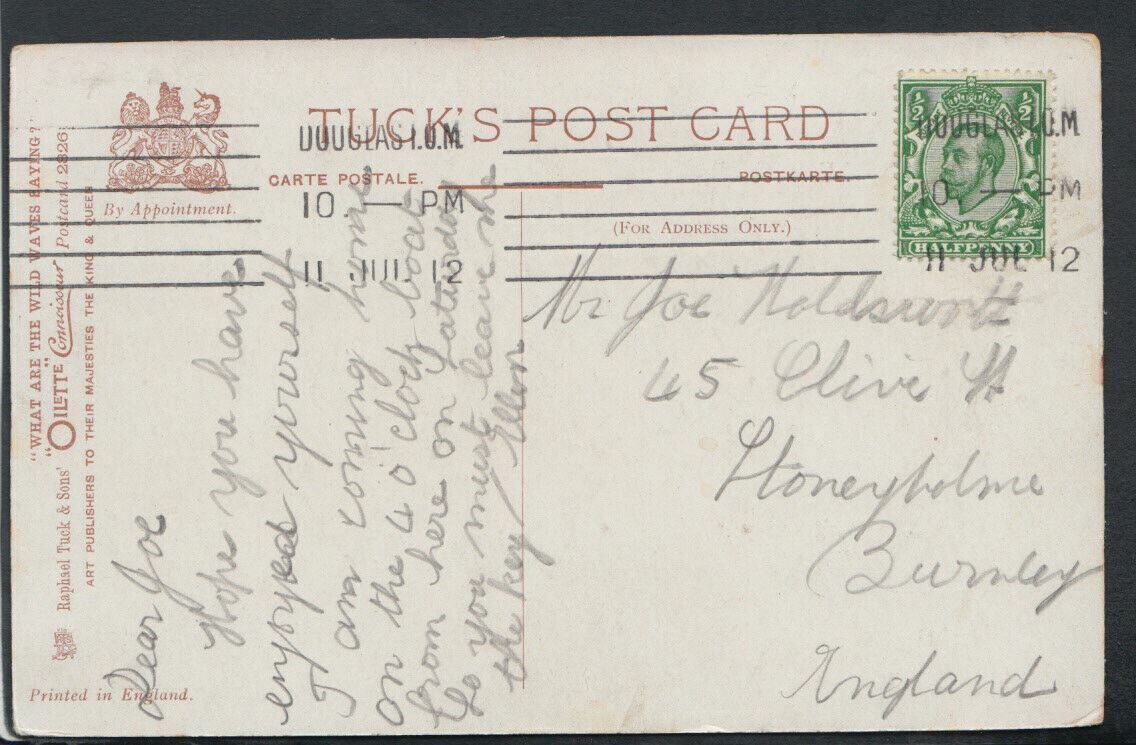 TUCK'S POST CARD
CARTE POSTALE.
POSTKARTE.
(FOR ADDRESS ONLY.)
By Appointment.
"WHAT ARE THE WILD WAVES SAYING?"
Raphael Tuck & Sons' "OILETTE" Connoisseur Postcard 2826
ART PUBLISHERS TO THEIR MAJESTIES THE KING & QUEEN
Printed in England.
DOUGLAS I.O.M.
10 — PM
11 JUL 12
½ ½
HALFPENNY
DOUGLAS I.O.M
10 — PM
11 JUL 12
Dear Joe
Hope you have
enjoyed yourself
I am coming home
on the 4 o'clock boat
from here on Saturday
So you must leave me
the key Ellen
Mr Joe Holdsworth
45 Clive St
Stoneyholme
Burnley
England